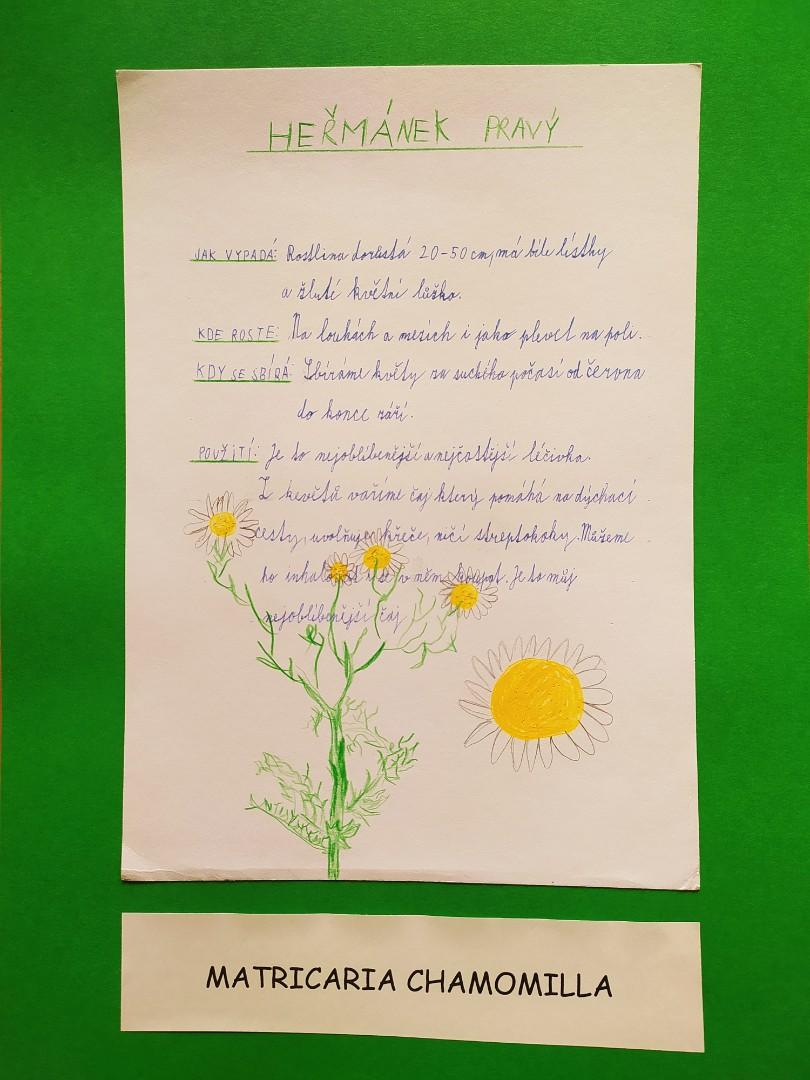 HEŘMÁNEK PRAVÝ
JAK VYPADÁ: Rostlina dorůstá 20-50 cm, má bílé lístky
a žluté květní lůžko.
KDE ROSTE: Na loukách a mezích i jako plevel na poli.
KDY SE SBÍRÁ: Sbíráme květy za suchého počasí od června
do konce září.
POUŽITÍ: Je to nejoblíbenější a nejčastější léčivka.
Z kevětů vaříme čaj který pomáhá na dýchací
cesty, uvolňuje křeče, ničí streptokoky. Můžeme
ho inhalovat i se v něm koupat. Je to můj
nejoblíbenější čaj
MATRICARIA CHAMOMILLA